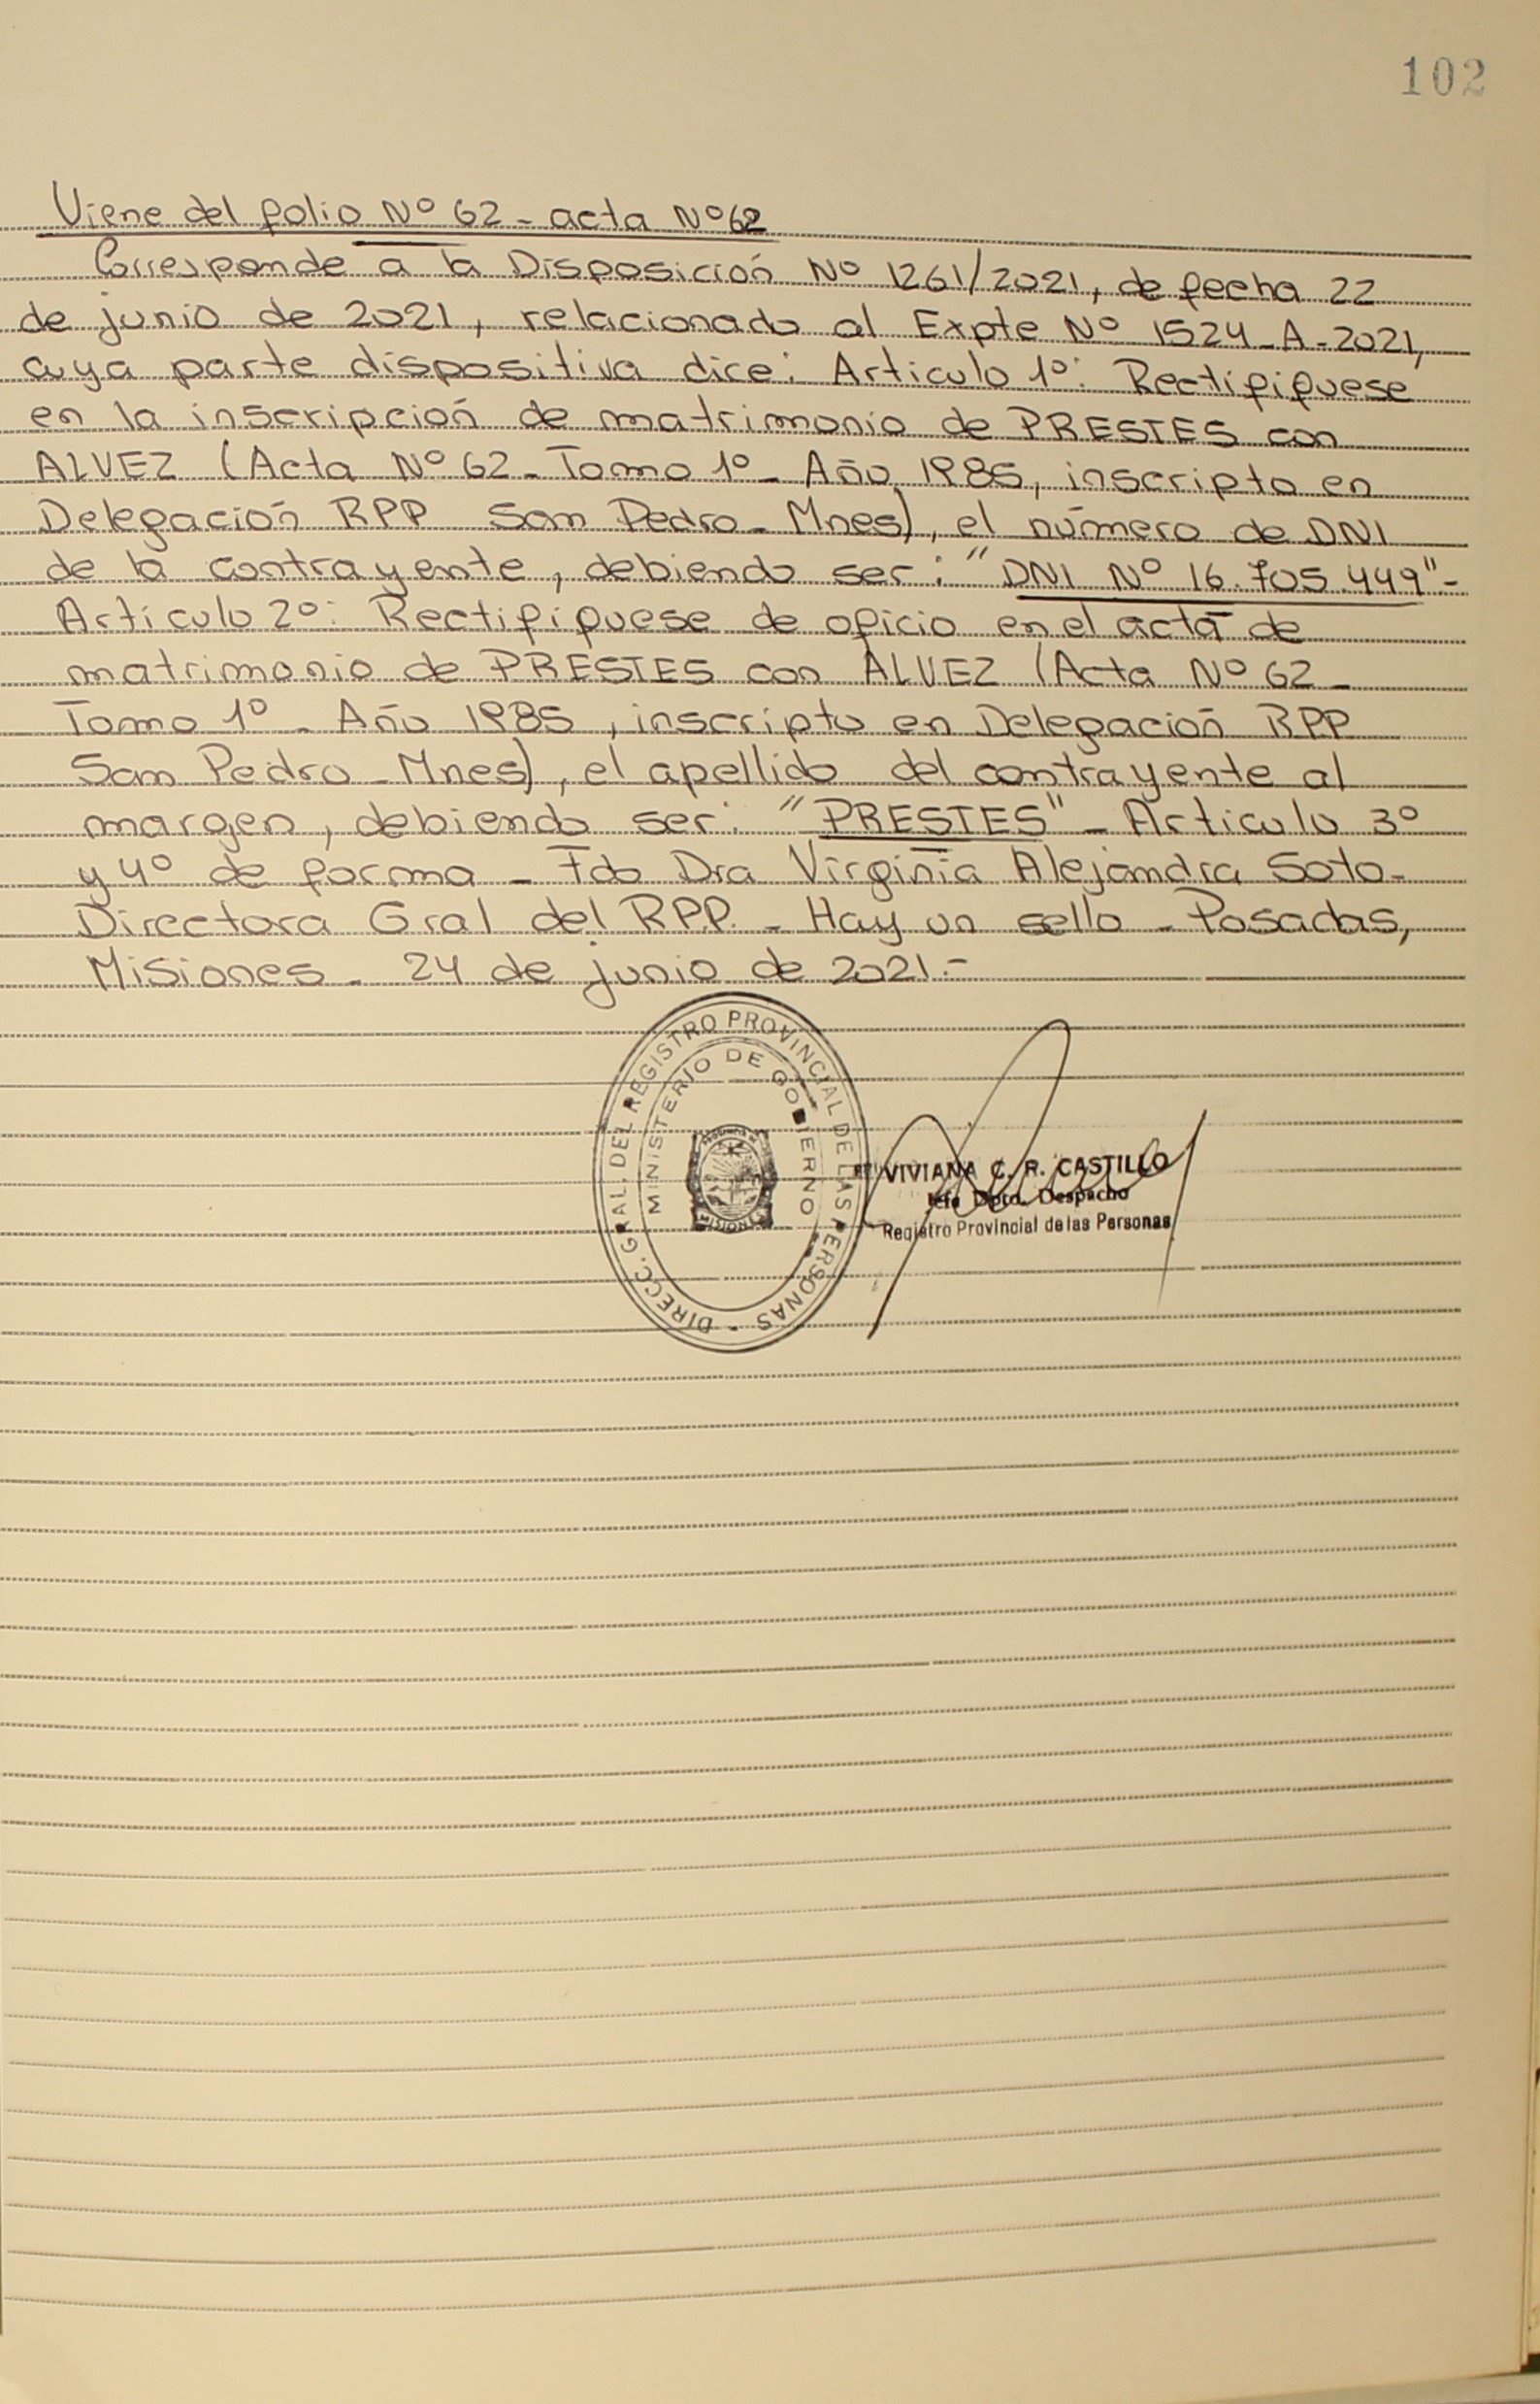 102
Viene del folio Nº 62 - acta Nº 62
Corresponde a la Disposición Nº 1261/2021, de fecha 22
de junio de 2021, relacionado al Expte Nº 1524-A-2021,
cuya parte dispositiva dice: Artículo 1º: Rectifíquese
en la inscripción de matrimonio de PRESTES con
ALVEZ (Acta Nº 62 - Tomo 1º - Año 1985, inscripto en
Delegación RPP San Pedro - Mnes), el número de DNI
de la contrayente, debiendo ser: "DNI Nº 16.705.449"-
Artículo 2º: Rectifíquese de oficio en el acta de
matrimonio de PRESTES con ALVEZ (Acta Nº 62 -
Tomo 1º - Año 1985, inscripto en Delegación RPP
San Pedro - Mnes), el apellido del contrayente al
margen, debiendo ser: "PRESTES" - Artículo 3º
y 4º de forma - Fdo Dra Virginia Alejandra Soto -
Directora Gral del R.P.P. - Hay un sello - Posadas,
Misiones - 24 de junio de 2021.-
DIRECC. GRAL. DEL REGISTRO PROVINCIAL DE LAS PERSONAS
MINISTERIO DE GOBIERNO
VIVIANA C. R. CASTILLO
Jefe Dpto. Despacho
Registro Provincial de las Personas